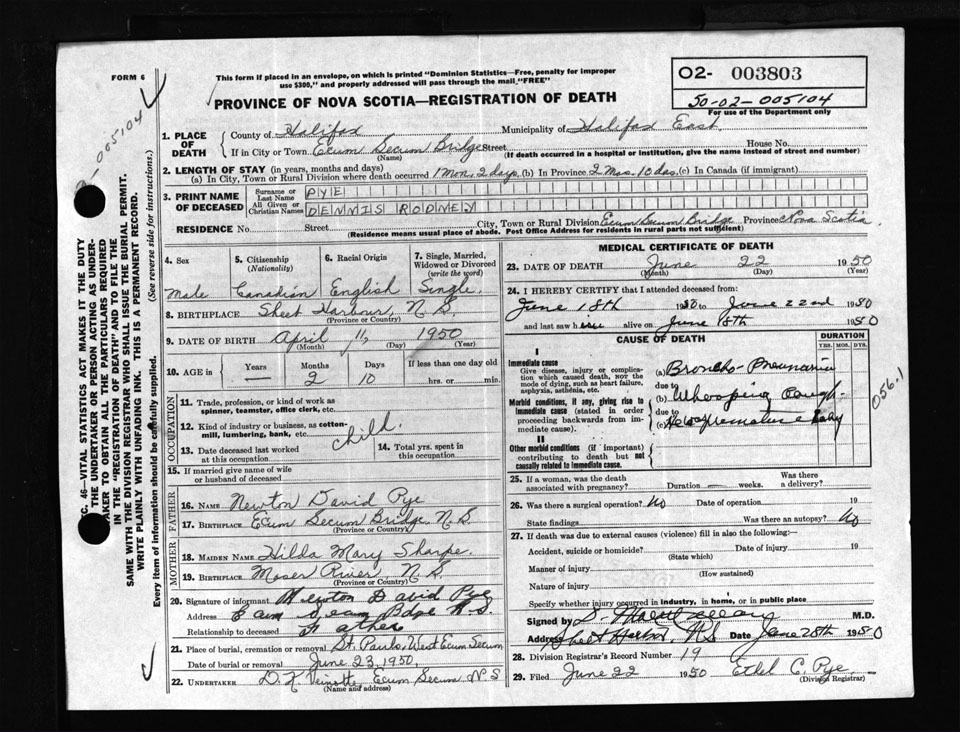 FORM 6
This form if placed in an envelope, on which is printed "Dominion Statistics—Free, penalty for improper
use $300," and properly addressed will pass through the mail "FREE"
PROVINCE OF NOVA SCOTIA—REGISTRATION OF DEATH
02- 003803
50-02-005104
For use of the Department only
005104
C. 46—VITAL STATISTICS ACT MAKES IT THE DUTY
THE UNDERTAKER OR PERSON ACTING AS UNDER-
AKER TO OBTAIN ALL THE PARTICULARS REQUIRED
IN THE "REGISTRATION OF DEATH" AND TO FILE THE
SAME WITH THE DIVISION REGISTRAR WHO SHALL ISSUE THE BURIAL PERMIT.
WRITE PLAINLY WITH UNFADING INK. THIS IS A PERMANENT RECORD.
Every item of information should be carefully supplied. (See reverse side for instructions.)
1. PLACE OF DEATH County of Halifax Municipality of Halifax East
If in City or Town Ecum Secum Bridge Street House No.
(Name) (If death occurred in a hospital or institution, give the name instead of street and number)
2. LENGTH OF STAY (in years, months and days)
(a) In City, Town or Rural Division where death occurred 1 Mon, 2 days (b) In Province 2 Mos. 10 das. (c) In Canada (if immigrant)
3. PRINT NAME OF DECEASED Surname or Last Name PYE
All Given or Christian Names DENNIS RODNEY
RESIDENCE No. Street City, Town or Rural Division Ecum Secum Bridge Province Nova Scotia
(Residence means usual place of abode. Post Office Address for residents in rural parts not sufficient)
4. Sex 5. Citizenship (Nationality) 6. Racial Origin 7. Single, Married, Widowed or Divorced (write the word)
Male Canadian English Single.
8. BIRTHPLACE Sheet Harbour, N.S.
(Province or Country)
9. DATE OF BIRTH April 11, 1950
(Month) (Day) (Year)
10. AGE in Years Months Days If less than one day old
— 2 10 hrs. or min.
OCCUPATION
11. Trade, profession, or kind of work as
spinner, teamster, office clerk, etc.
12. Kind of industry or business, as cotton-
mill, lumbering, bank, etc.
child.
13. Date deceased last worked
at this occupation
14. Total yrs. spent in
this occupation
15. If married give name of wife
or husband of deceased
FATHER
16. Name Newton David Pye
17. Birthplace Ecum Secum Bridge N.S.
(Province or Country)
MOTHER
18. MAIDEN NAME Hilda Mary Sharpe.
19. BIRTHPLACE Moser River, N.S.
(Province or Country)
20. Signature of informant Newton David Pye
Address Ecum Secum Bdge N.S.
Relationship to deceased Father
21. Place of burial, cremation or removal St. Pauls, West Ecum Secum
Date of burial or removal June 23, 1950,
22. UNDERTAKER Ecum Secum N S
(Name and address)
MEDICAL CERTIFICATE OF DEATH
23. DATE OF DEATH June 22 1950
(Month) (Day) (Year)
24. I HEREBY CERTIFY that I attended deceased from:
June 18th 1950 to June 22nd 1950
and last saw him alive on June 18th 1950
CAUSE OF DEATH
DURATION
YRS. MOS. DYS.
I
Immediate cause
Give disease, injury or complica-
tion which caused death, not the
mode of dying, such as heart failure,
asphyxia, asthenia, etc.
(a) Broncho-Pneumonia
due to
Morbid conditions, if any, giving rise to
immediate cause (stated in order
proceeding backwards from im-
mediate cause).
(b) Whooping Cough.
due to
(c) Also premature baby
056.1
II
Other morbid conditions (if important)
contributing to death but not
causally related to immediate cause.
25. If a woman, was the death
associated with pregnancy? Duration — weeks. Was there a delivery?
26. Was there a surgical operation? No Date of operation 19
State findings Was there an autopsy? No
27. If death was due to external causes (violence) fill in also the following:—
Accident, suicide or homicide? Date of injury 19
(State which)
Manner of injury
(How sustained)
Nature of injury
Specify whether injury occurred in industry, in home, or in public place
Signed by M.D.
Address Sheet Harbor, N.S Date June 28th 1950
28. Division Registrar's Record Number 19
29. Filed June 22 1950 Ethel C. Pye
(Division Registrar)